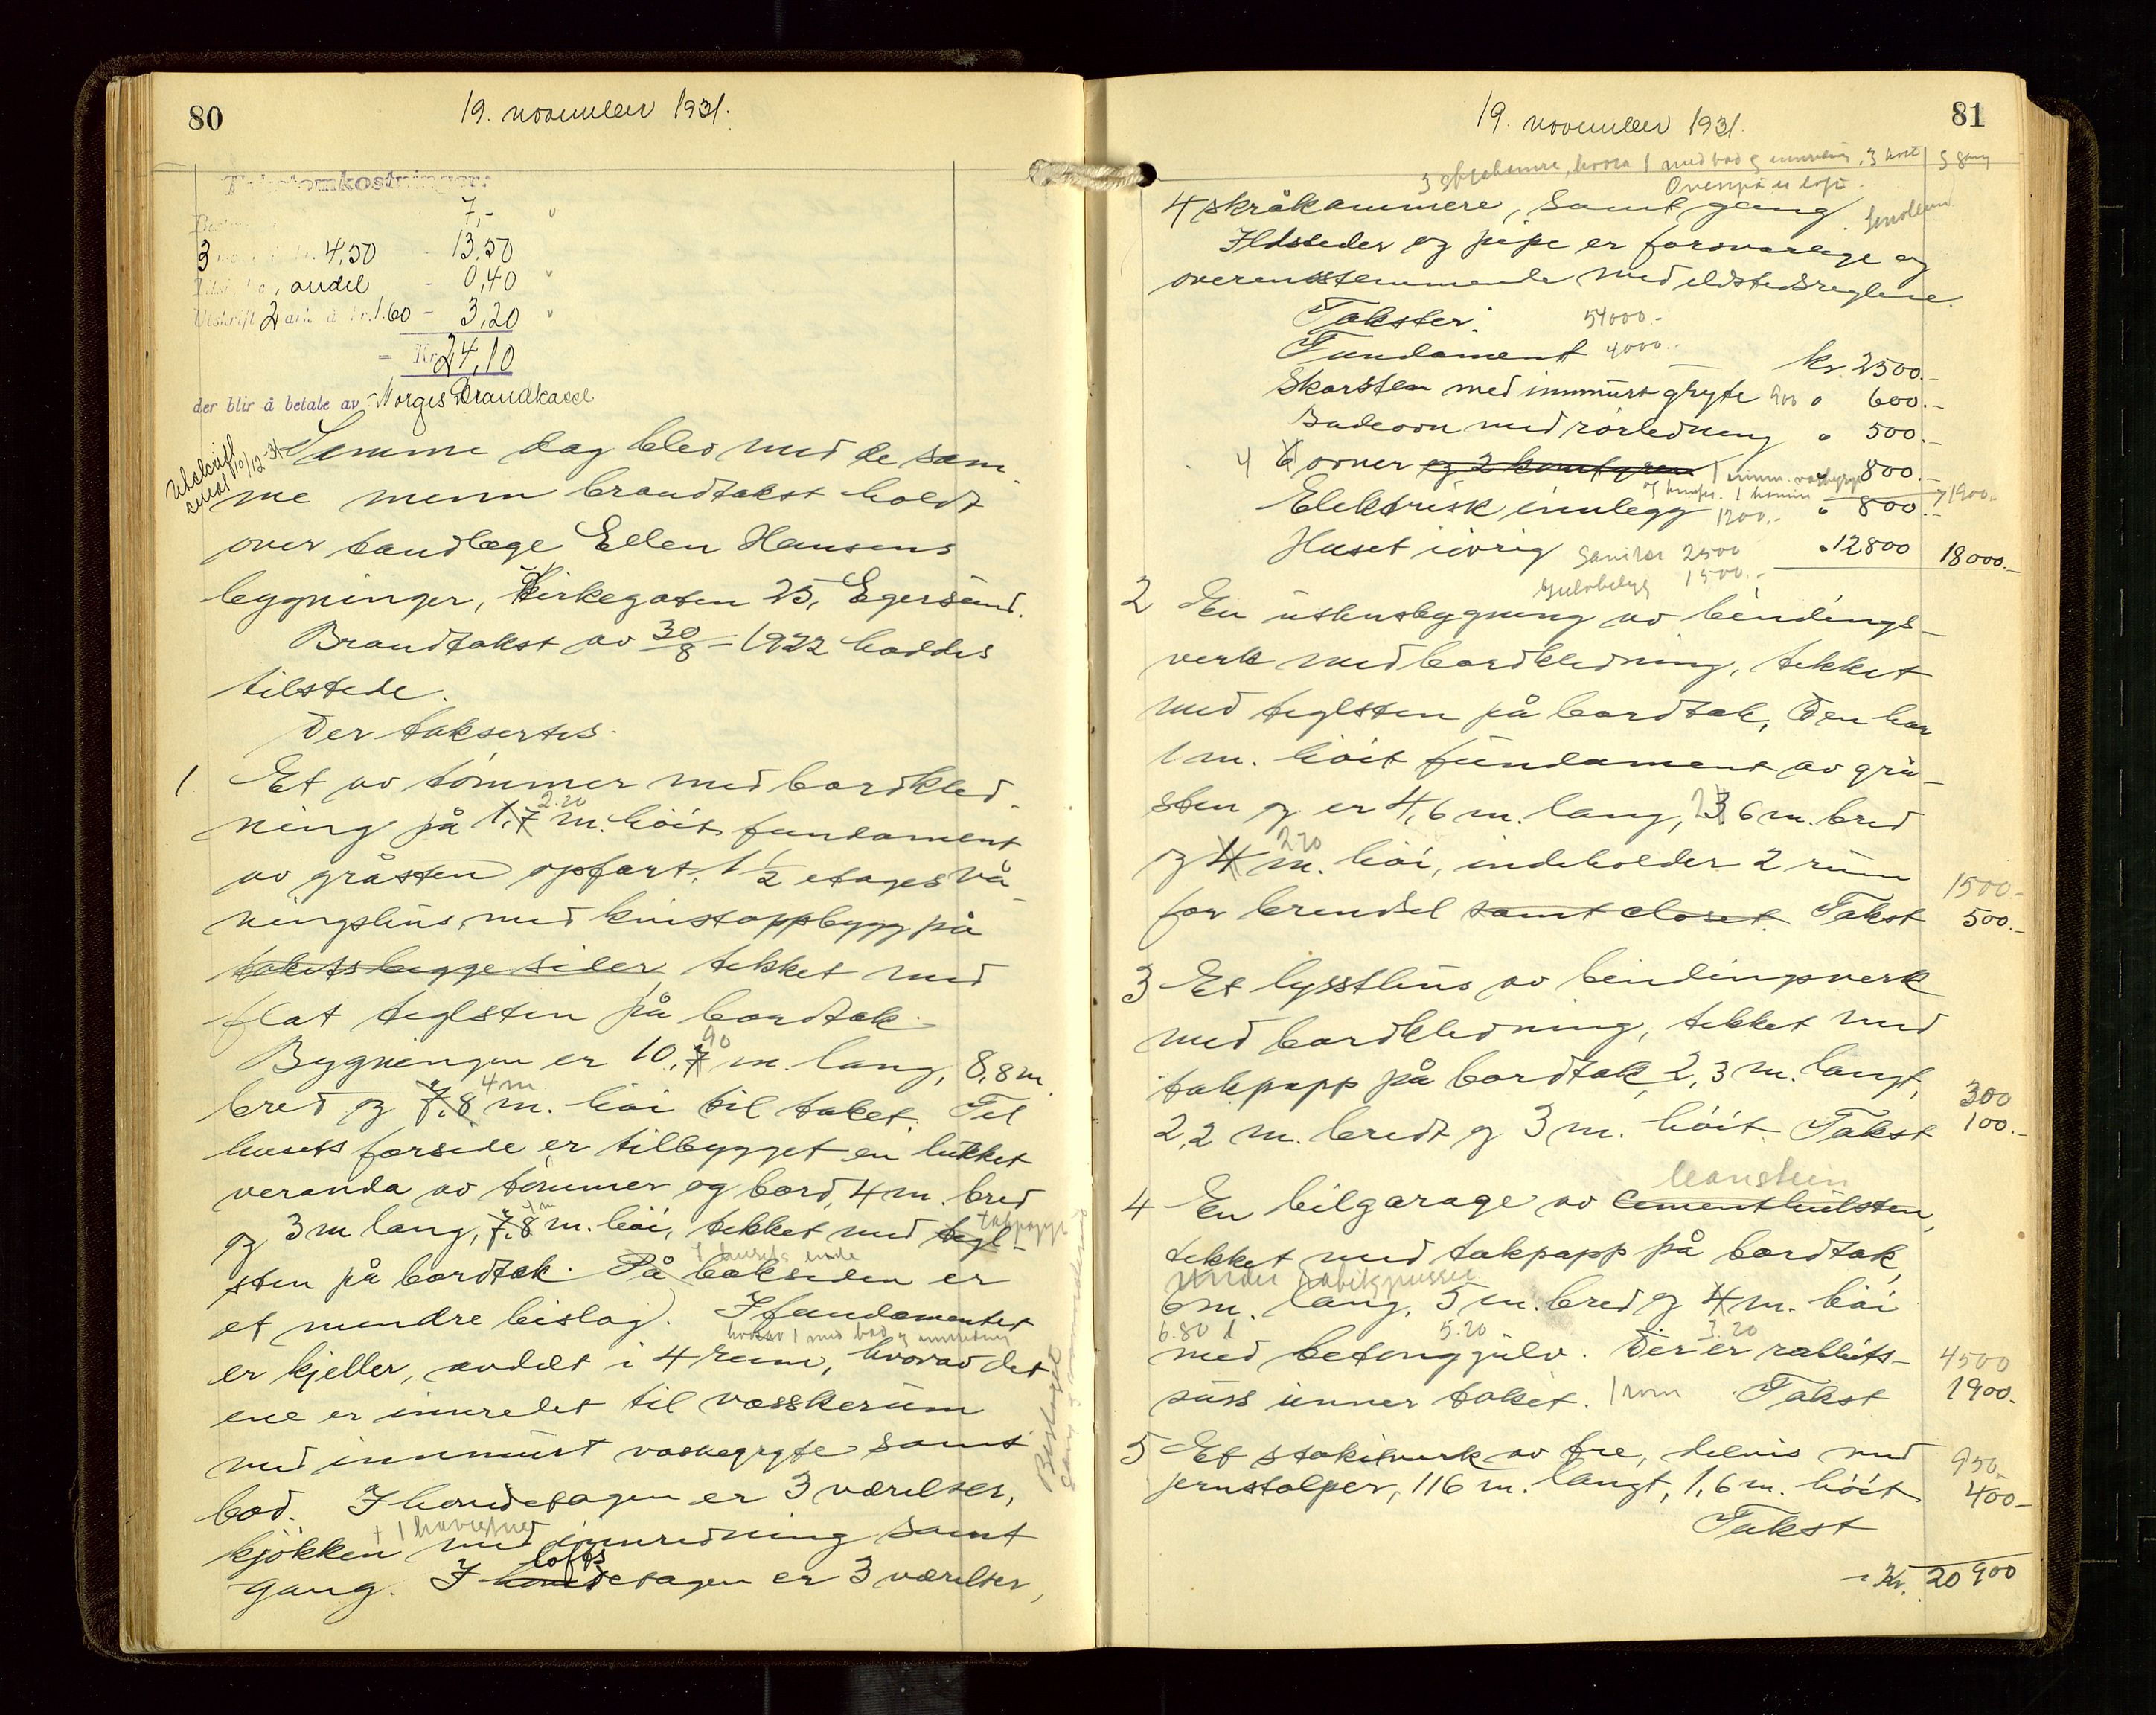 80
19. november 1931.
Takstomkostninger:
7,-
3 4,50 - 13,50
andel - 0,40
Utskrift 2 ark à kr. 1.60 - 3,20
= Kr. 24,10
der blir å betale av Norges Brandkasse
Utskrift
10/12-31
Samme dag blev med de sam
me menn brandtakst holdt
over tandlæge Ellen Hansens
bygninger, Kirkegaten 25, Egersund.
Brandtakst av 30/8-1922 haddes
tilstede.
Der taksertes.
1. Et av tømmer med bordkled-
2.20
ning på 1,7 m. høit fundament
av gråsten opført, 1 1/2 etages vå-
ningshus, med kvistoppbygg på
takets begge sider, tekket med
flat teglsten på bordtak.
90
Bygningen er 10,7 m. lang, 8,8 m.
4 m
bred og 7,8 m. høi til taket. Til
husets forside er tilbygget en lukket
veranda av tømmer og bord, 4 m. bred
og 3 m lang, 7,8 m. høi, tekket med tegl-
takpapp
sten på bordtak. På baksiden er
I husets ende
et mindre bislag. I fundamentet
hvorav 1 med bad og innredning
er kjeller, avdelt i 4 rum, hvorav det
ene er innredet til vasskerum
med innmurt vaskegryte samt
bod. I hovedetagen er 3 værelser,
kjøkken med innredning samt
lofts
gang. I hovedetagen er 3 værelser,
81
19. november 1931.
Ovenpå er loft.
4 skråkammere, samt gang.
Ildsteder og pipe er forsvarlige og
overensstemmende med ildstedsreglene.
Takster: 54000.-
Fundament 4000.- kr. 2500.-
Skorsten med innmurt gryte 900 " 600.-
Badeovn med rørledning " 500.-
4 6 ovner og 2 komfyrer " 800.-
1 kamin
Elektrisk innlegg 1200.- " 800.- 71900.-
Huset iøvrig " 12800 18000.-
Sanitær 2500
Gulvbelegg 1500.-
2 En uthusbygning av bindings-
verk med bordkledning, tekket
med teglsten på bordtak. Den har
1 m. høit fundament av grå-
sten og er 4,6 m. lang, 3,6 m. bred
2.20
og 4 m. høi, indeholder 2 rum
1500.-
for brendsel samt closet. Takst 500.-
3 Et lyssthus av bindingsverk
med bordkledning, tekket med
takpapp på bordtak, 2,3 m. langt, 300
2,2 m. bredt og 3 m. høit. Takst 100.-
4 En bilgarage av cementhulsten,
tekket med takpapp på bordtak,
6 m. lang, 5 m. bred og 4 m. høi
6.80 5.20 3.20
med betonggulv. Der er rabbits- 4500
puss unner taket. 1 rom Takst 1900.
5 Et stakitverk av tre, delvis med 950.
jernstolper, 116 m. langt, 1,6 m. høit 400.-
Takst
= Kr. 20 900